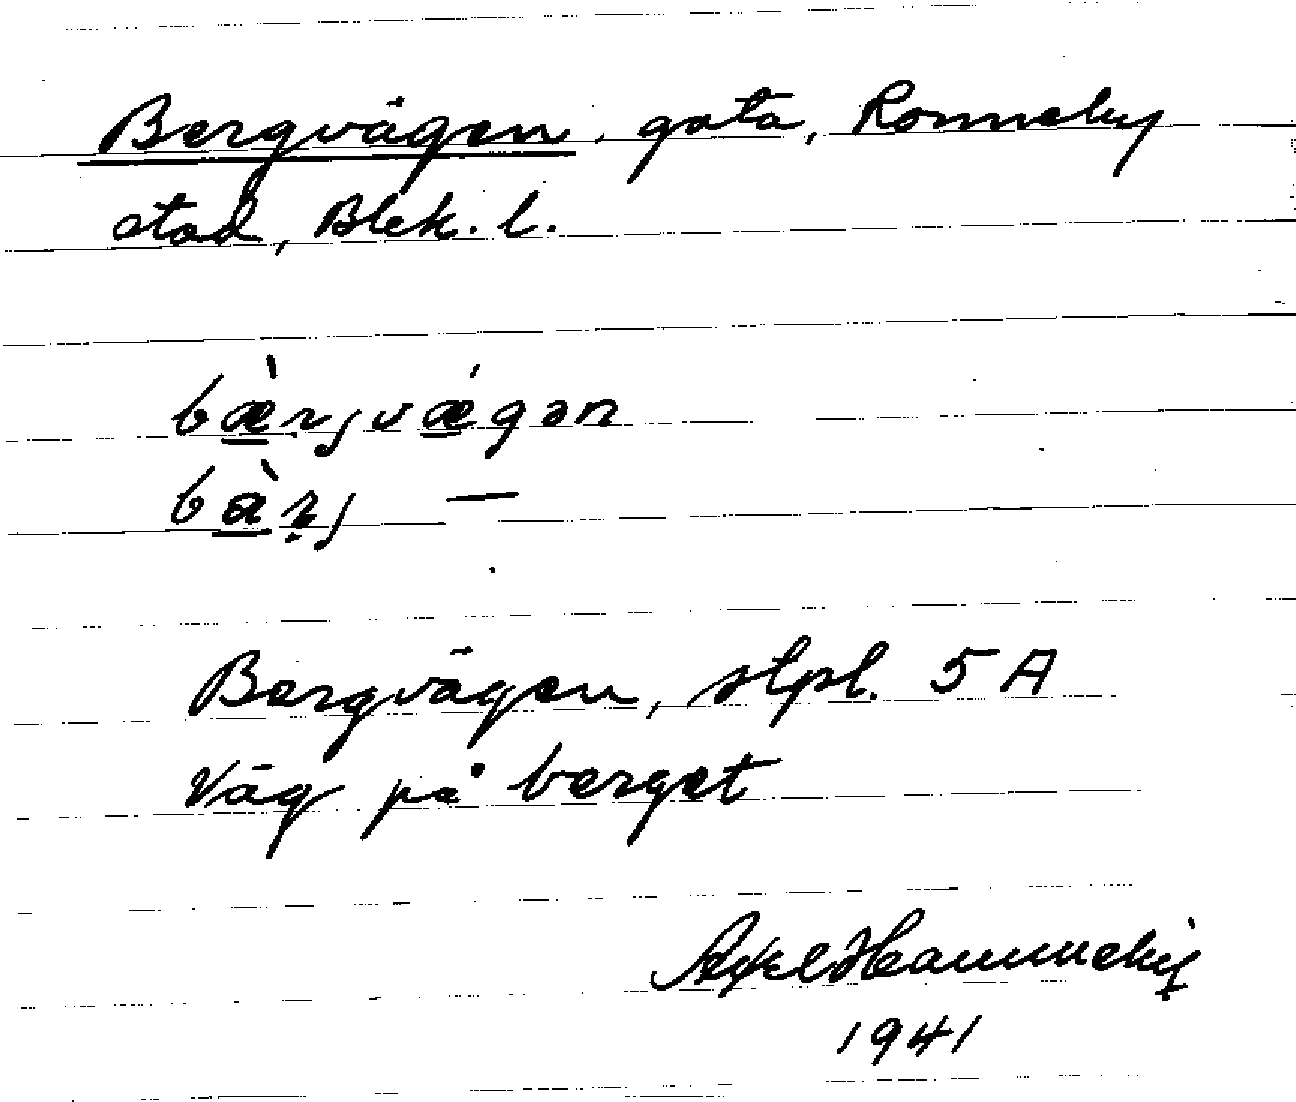 Bergvägen, gata, Ronneby
stad, Blek. l.
bæ̀rjvǽgən
bàrj —
Bergvägen, stpl. 5 A
Väg på berget
Axel
1941